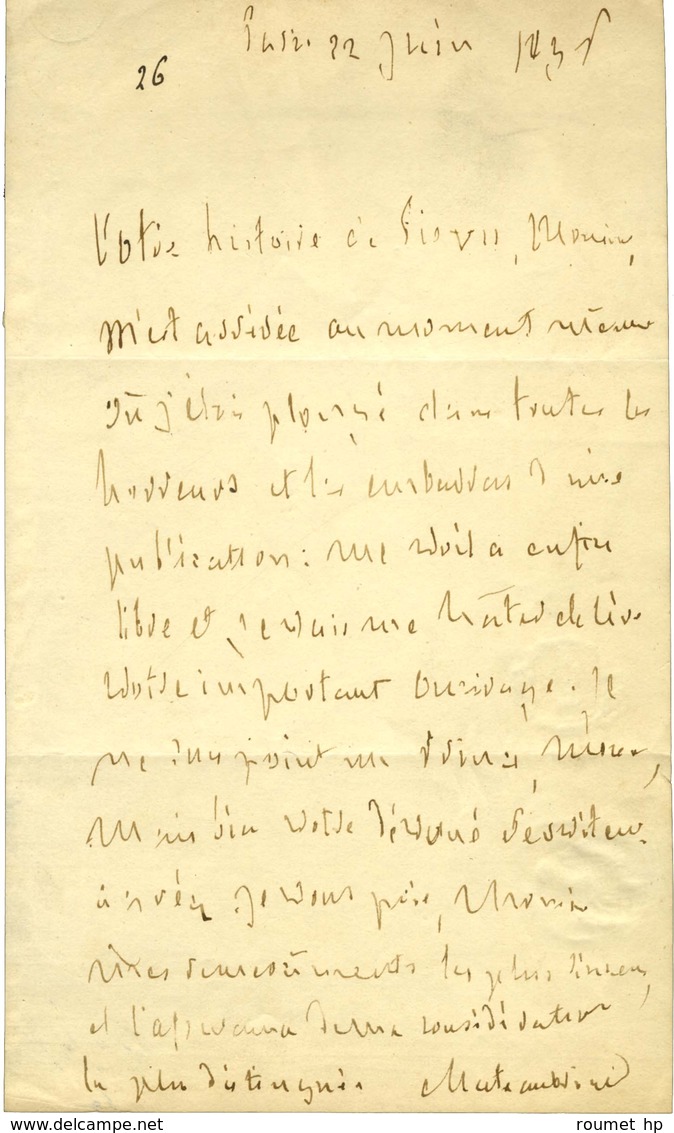 Paris 22 juin 1836
26
Votre histoire de, Monsieur,
m'est arrivée au moment même
où j'étois plongé dans toutes les
horreurs et les embarras d'une
publication: me voilà enfin
libre et je vais me hâter de lire
votre important ouvrage. Je
ne suis point un, Monsieur,
mais bien votre dévoué serviteur.
agréez je vous prie, Monsieur
mes remerciements les plus sincères,
et l'assurance de ma considération
la plus distinguée Chateaubriand
roumet hp